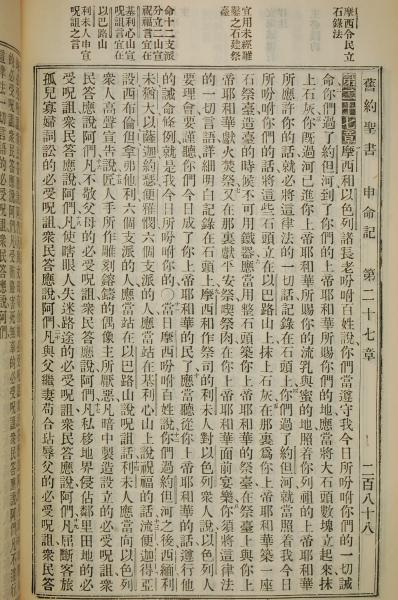 舊約聖書 申命記 第二十七章 二百八十八
摩西令民立
石錄法
宜用未經雕
鑿之石建祭
臺
命十二支派
分立二山宣
祝福言宜在
基利心山宣
呪詛言宜在
以巴路山
利未人申宣
呪詛之言
第二十七章摩西和以色列諸長老吩咐百姓說你們當遵守我今日所吩咐你們的一切誡
命你們過了約但河到了你們的上帝耶和華所賜你們的地應當將大石頭數塊立起來抹
上石灰你既過河已進你上帝耶和華所賜你的流乳與蜜的地照着你列祖的上帝耶和華
所應許你的話就必將這律法的一切話記錄在石頭上你們過了約但河就當照着我今日
所吩咐你們的話將這些石頭立在以巴路山上抹上石灰在那裏爲你上帝耶和華築一座
石祭臺造臺的時候不可用鐵器應當用整石頭築你上帝耶和華的祭臺在祭臺上與你上
帝耶和華獻火焚祭又在那裏獻平安祭喫祭肉在你上帝耶和華面前宴樂你須將這律法
的一切言語詳細明白記錄在石頭上摩西和作祭司的利未人對以色列衆人說以色列人
要理會要謹聽你們今日成了你上帝耶和華的民了應當聽從你上帝耶和華的話遵行他
的誡命條例就是我今日所吩咐你的〇當日摩西吩咐百姓說你們過約但河之後西緬利
未猶大以薩迦約瑟便雅憫六個支派的人應當站在基利心山上說祝福的話流便迦得亞
設西布倫但拿弗他利六個支派的人應當站在以巴路山說呪詛話利未人應當向以色列
衆人高聲宣告說匠人手所作雕刻鎔鑄的偶像主所厭惡凡暗中製造設立的必受呪詛衆
民答應說阿們凡不敬父母的必受呪詛衆民答應說阿們凡私移地界侵佔鄰里田地的必
受呪詛衆民答應說阿們凡使瞎眼人失迷路途的必受呪詛衆民答應說阿們凡屈斷客旅
孤兒寡婦詞訟的必受呪詛衆民答應說阿們凡與父繼妻苟合玷辱父的必受呪詛衆民答應